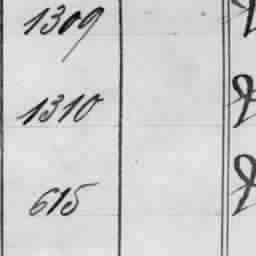 1309
1310
615